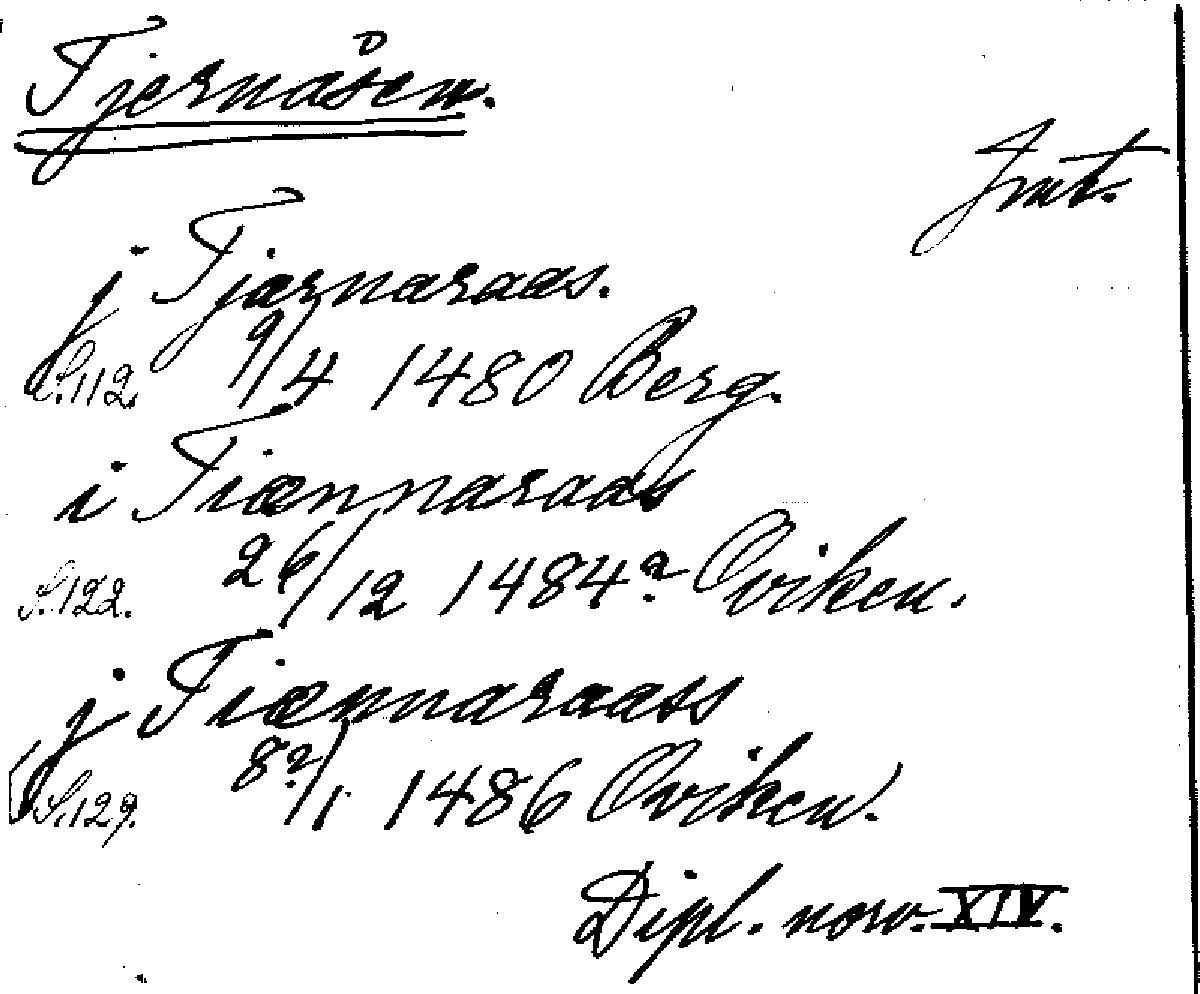 Tjernåsen.
Jmt.
j Tjärnaraas.
S. 112. 9/4 1480 Berg.
i Tiænnaraas
S. 122. 26/12 1484? Oviken.
j Tiænnaraass
S. 129. 8?/1 1486 Oviken.
Dipl. norv. XIV.